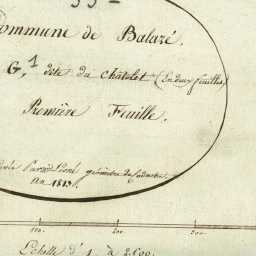 ommune de Balazé.
G, 1 dite du châtelet (En deux feuilles)
Première Feuille.
géomètre du Cadastre
An 1813.
100. 200 300
Echelle d' 1 à 2500.